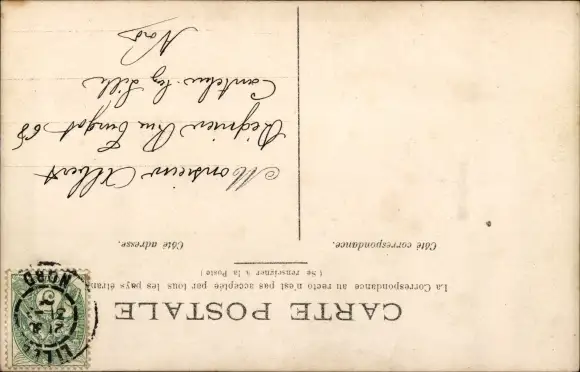 CARTE POSTALE
La Correspondance au recto n'est pas acceptée par tous les pays étran
(Se renseigner à la Poste)
Côté correspondance.
Côté adresse.
Monsieur Albert
Régnier Rue Turgot 68
Canteleu lez Lille
Nord
LILLE
NORD